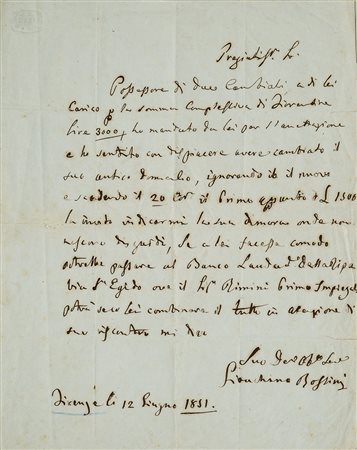 Pregiatis. Sr.
Possessore di due Cambiali a di lei
Carico p la somma Complessiva di Fiorentine
Lire 3000, ho mandato da lei per l'accettazione
e ho sentito con dispiacere avere cambiato il
suo antico domicilio, ignorando io il nuovo
e scadendo il 20 Cor. il primo appunto di £ 1500
la invito indicarmi la sua dimora onde non
nascono disguidi, Se a lei facesse comodo
potrebbe passare al Banco
via S. Egidio ove il Sig. Rimini primo Impiegato
potrà seco lei combinare il tutto in attenzione di
suo riscontro mi dico
Suo Dev.
Gioachino Rossini
Firenze li 12 Giugno 1851.